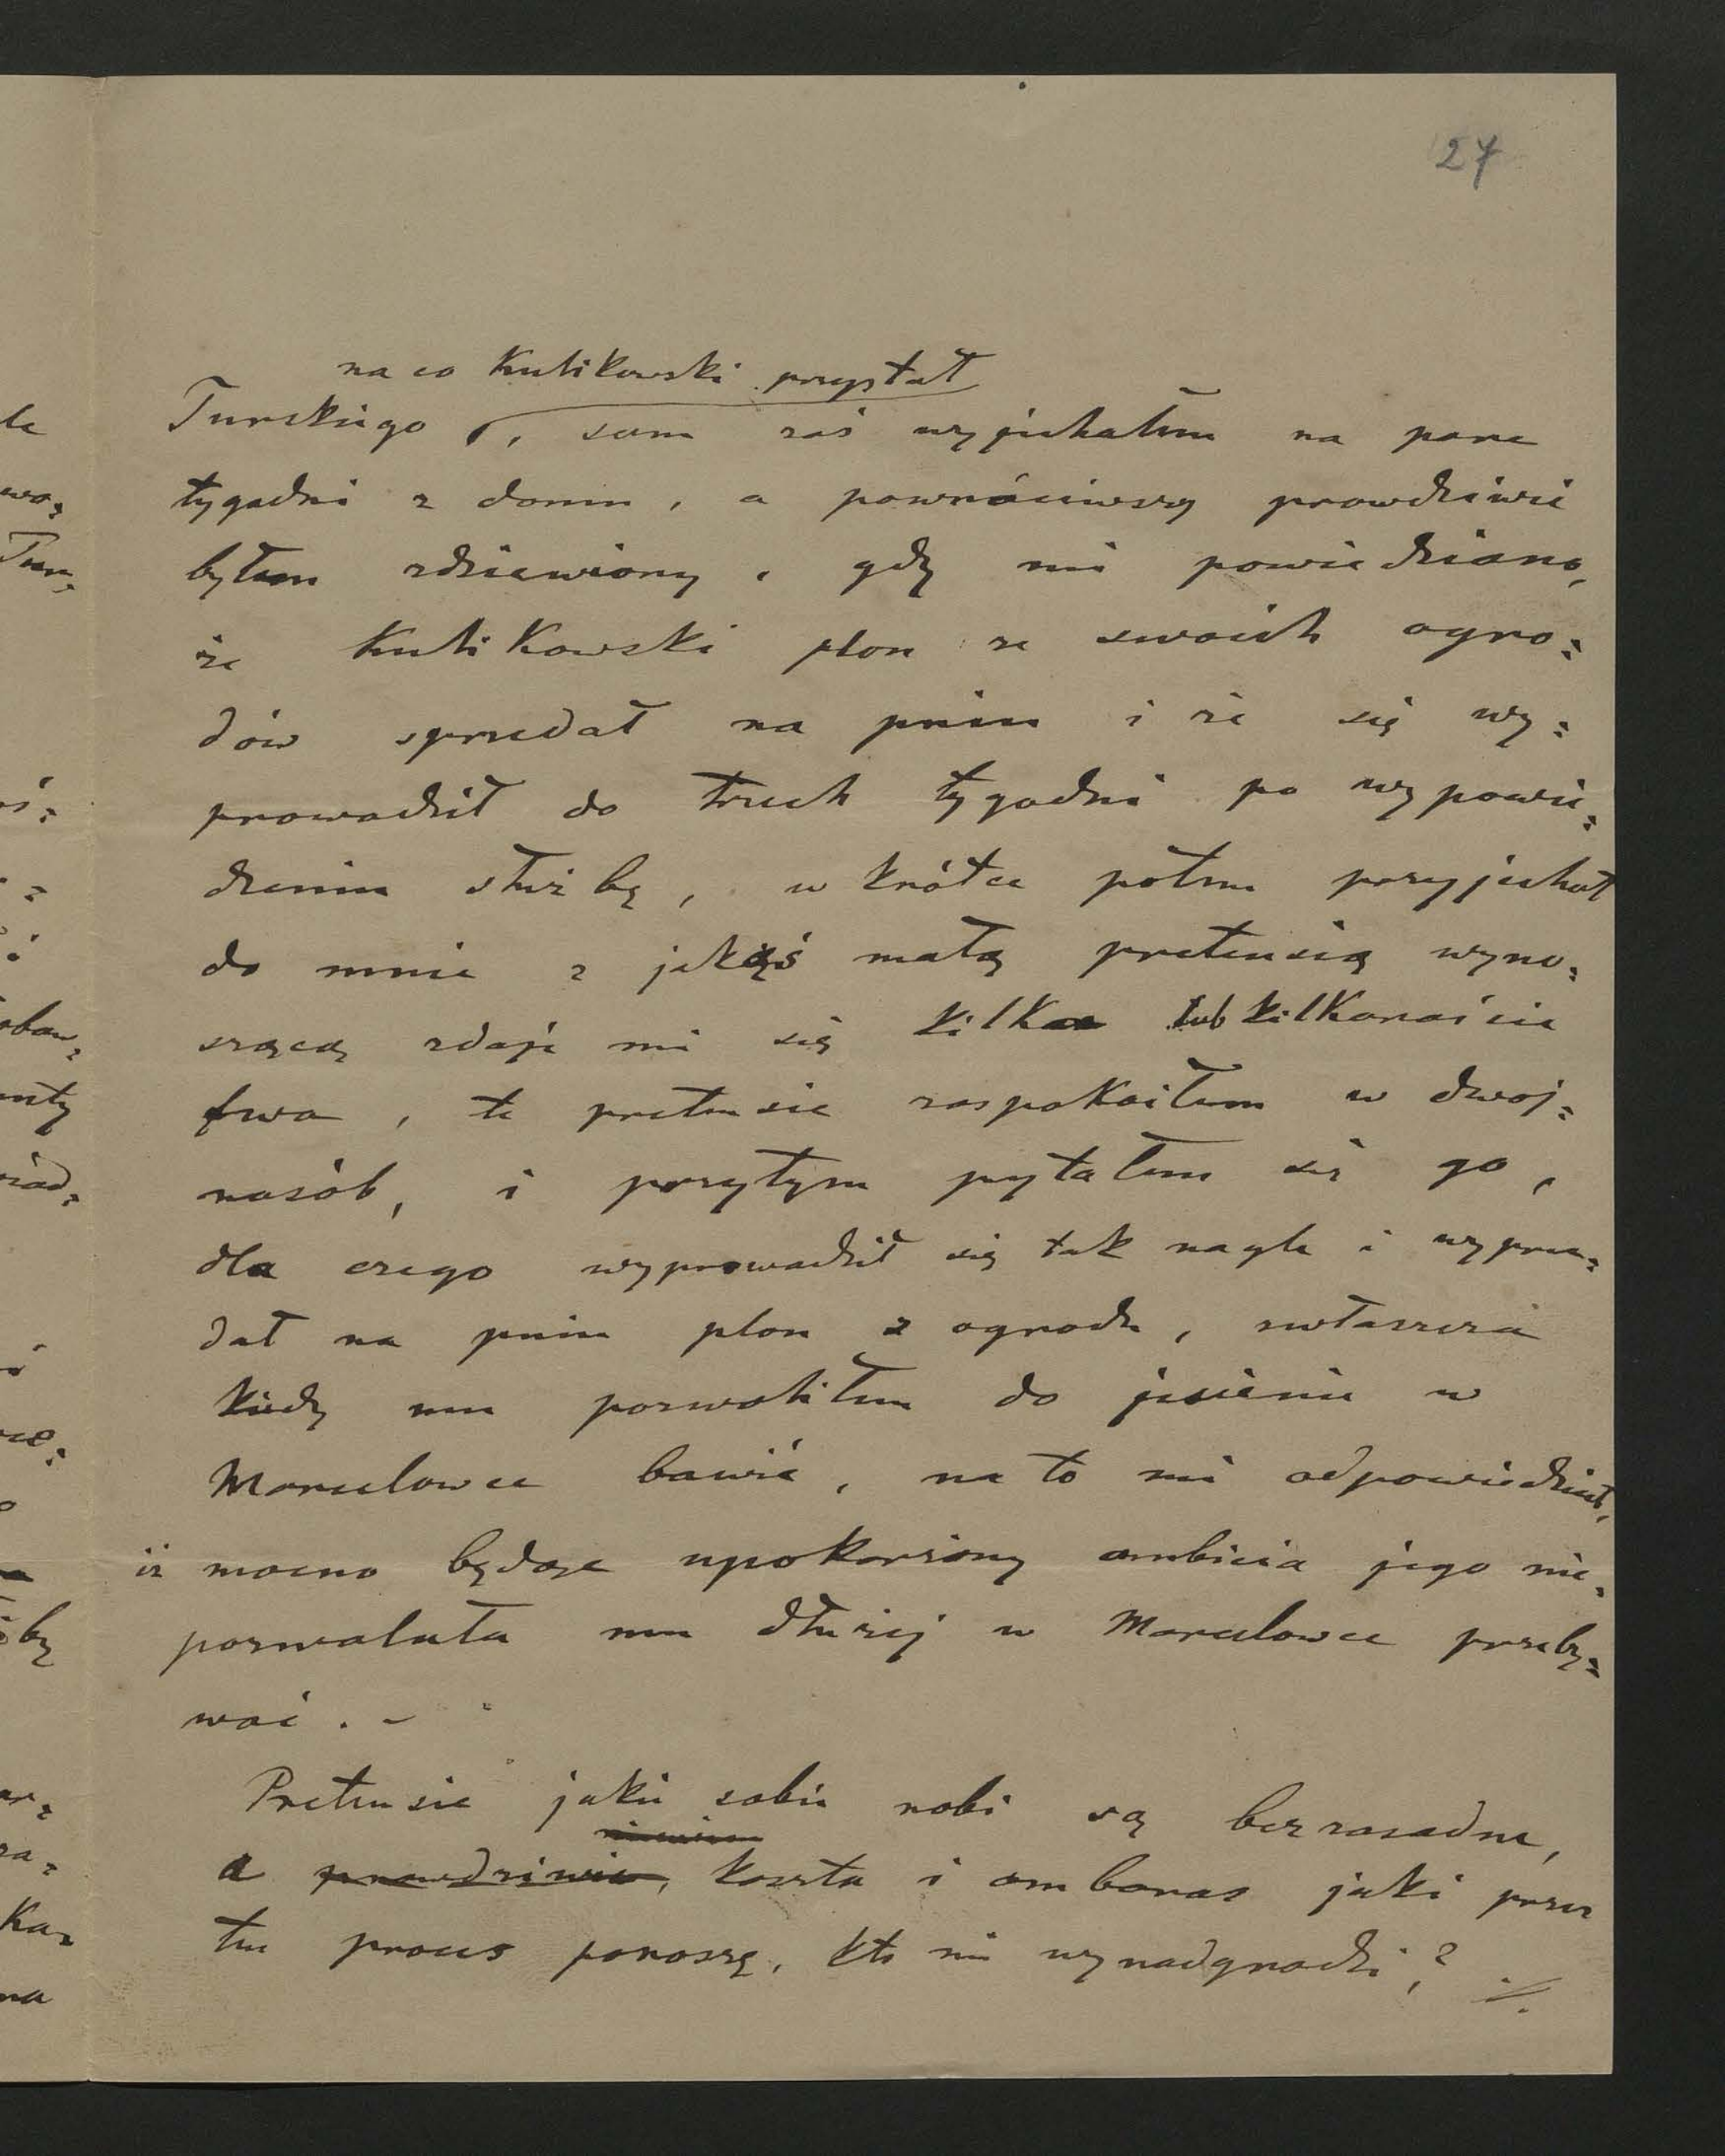 27
na co Kulikowski przystał
Turskiego, sam zaś wyjechałem na pare
tygodni z domu, a powróciwszy prawdziwie
byłem zdziewiony, gdy mi powiedziano,
że Kulikowski plon ze swoich ogro=
dów sprzedał na pniu i że się wy=
prowadził do trzech tygodni po wypowie=
dzeniu służbę, w krótce potem przyjechał
do mnie z jakąś małą pretensią wyno=
szącą zdaje mi się kilka lub kilkanaście
fwa, te pretensie zaspokoiłem w dwoj=
nasób, i przytym pytałem się go,
dla czego wyprowadził się tak nagle i wyprze=
dał na pniu plon z ogrodu, zwłaszcza
kiedy mu pozwoliłem do jesienie w
Marcelowce bawić, na to mi odpowiedział,
iż mocno będąc upokorzony ambicia jego nie=
pozwalała mu dłużej w Marcelowce przeby=
wać. -
Pretensie jakie sobie robi są bezzasadne,
a prawdziwie, koszta i ambaras jaki przez
ten proces ponoszę, kto mi wynadgrodzi? ./.
le
wo=
Tur=
oś=
obow=
nty
by
ar=
za=
Ka=
na